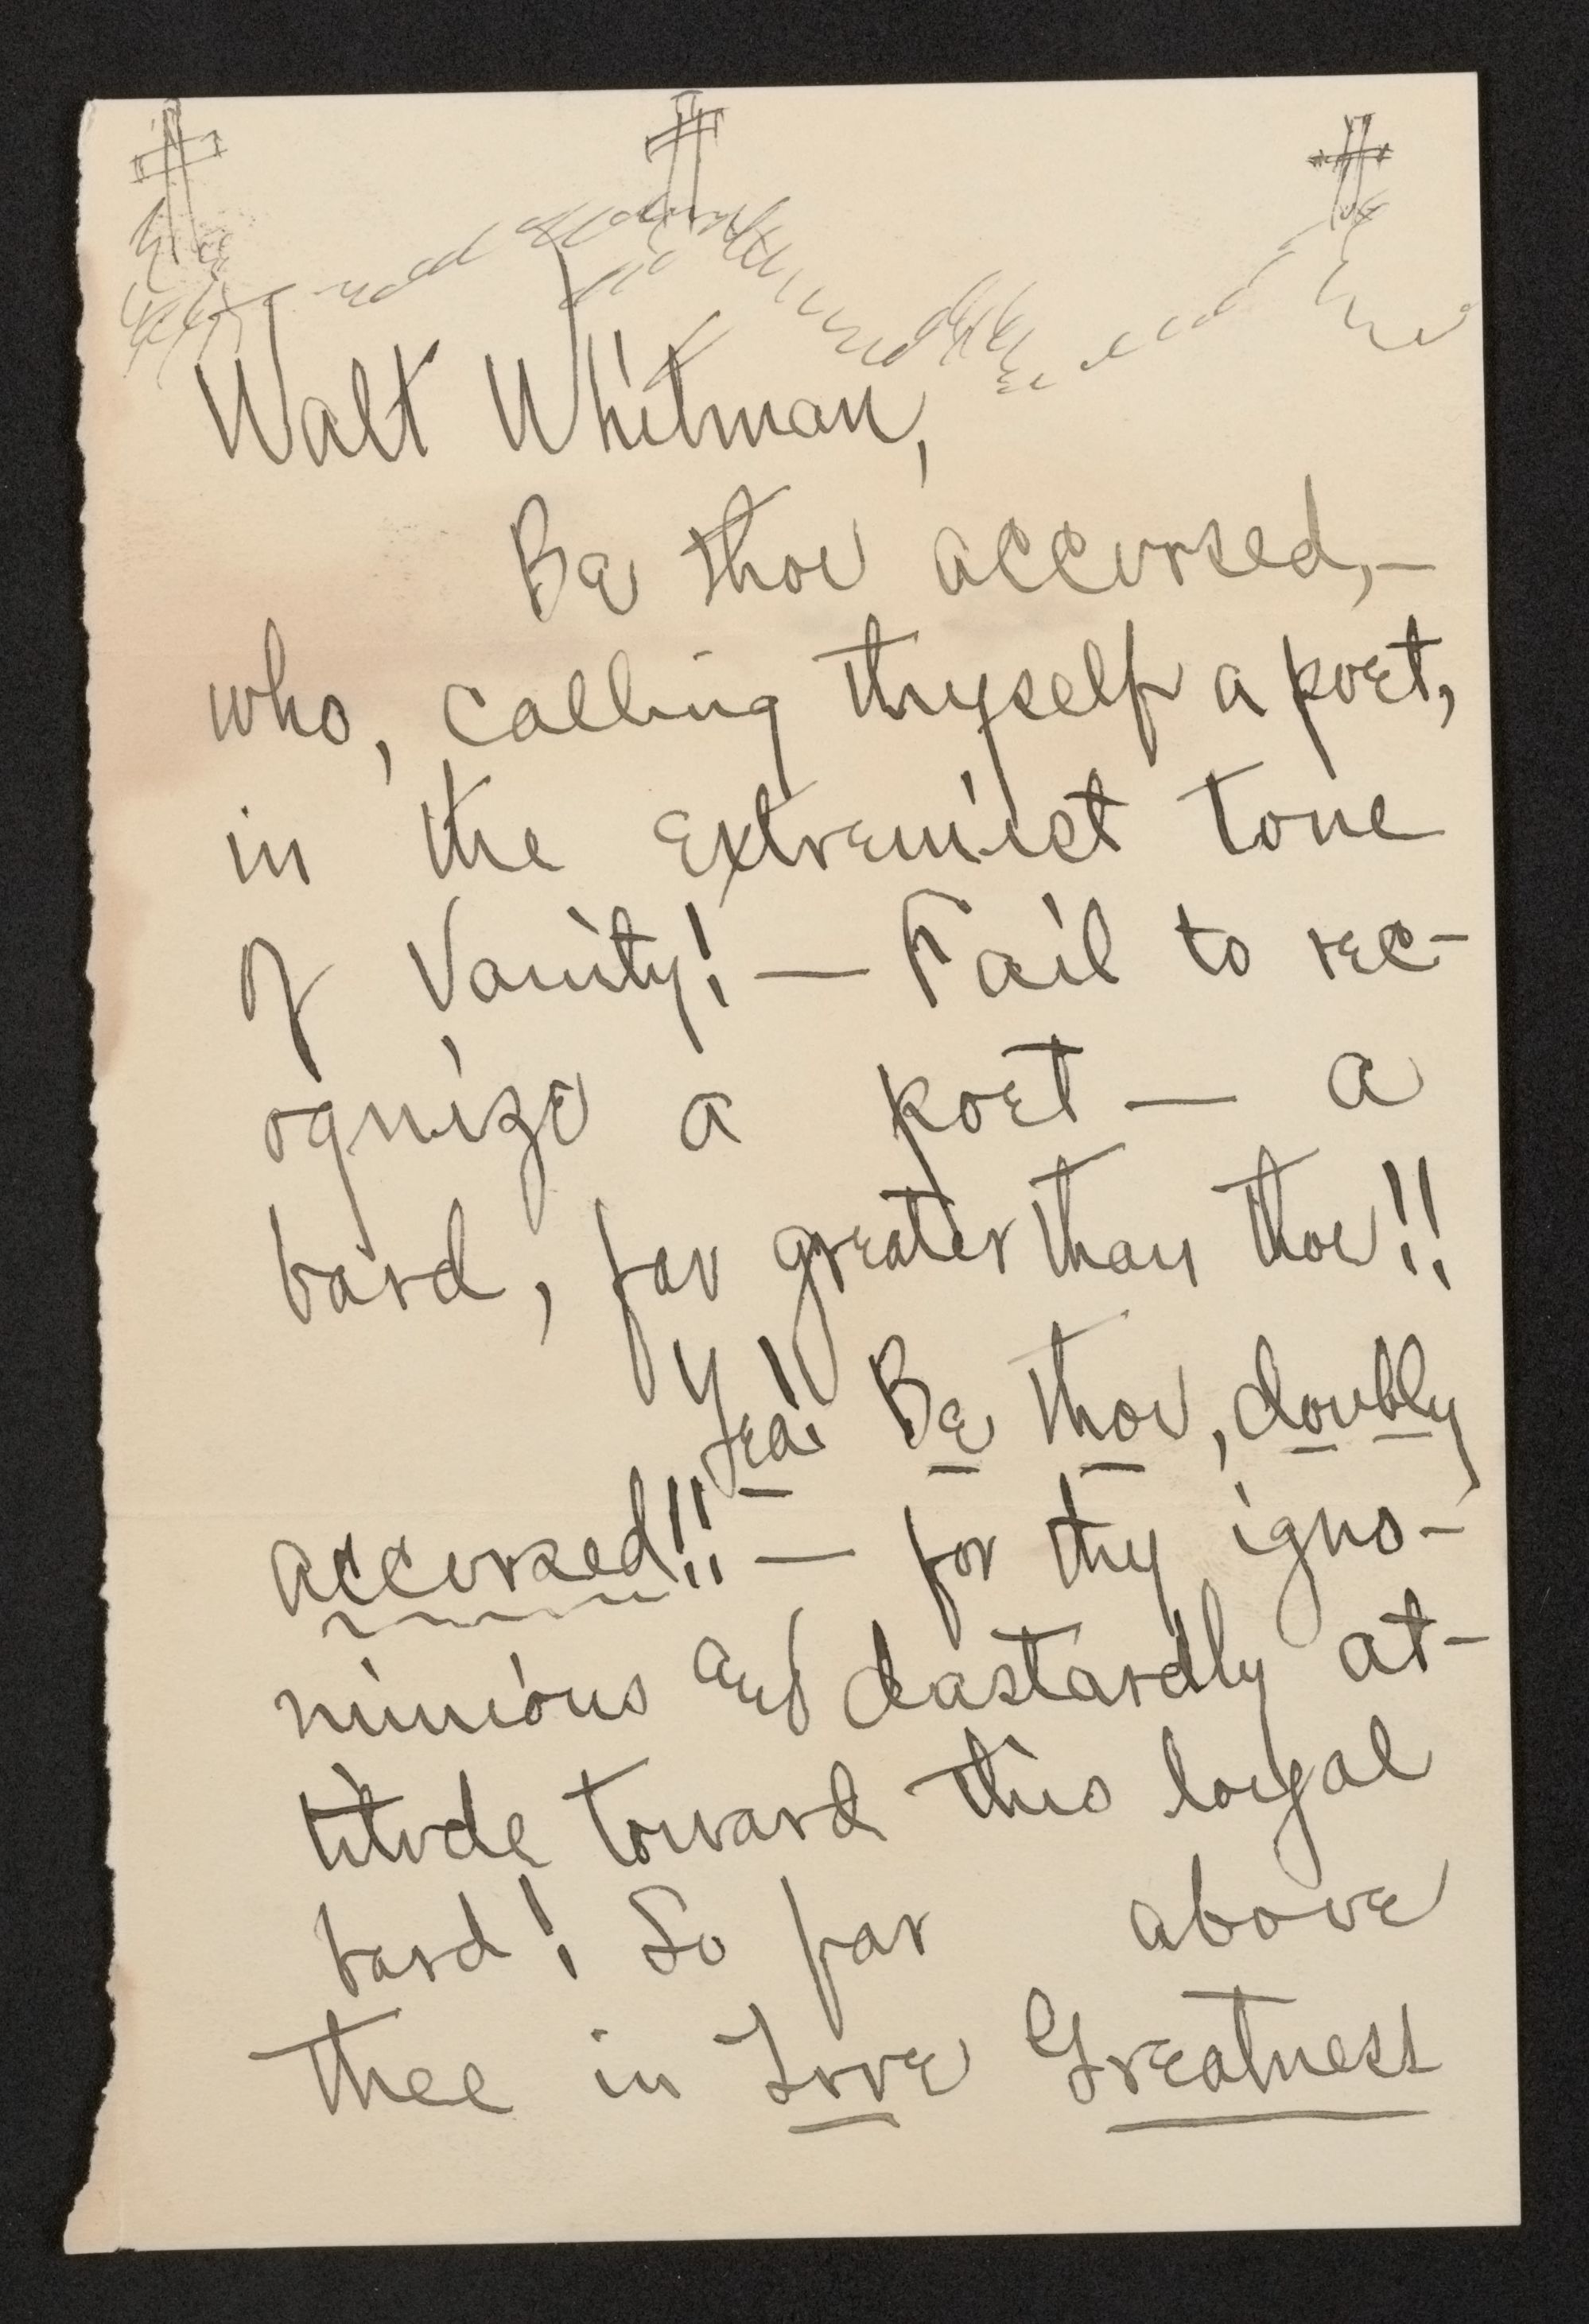 Walt Whitman,
Be thou accursed,—
who, calling thyself a poet,
in the extremist tone
of Vanity! — Fail to rec-
ognize a poet — a
bard, far greater than thou!!
Yea! Be thou, doubly
accursed!! — for thy igno-
minious and dastardly at-
titude toward this loyal
bard! So far above
thee in Love Greatness